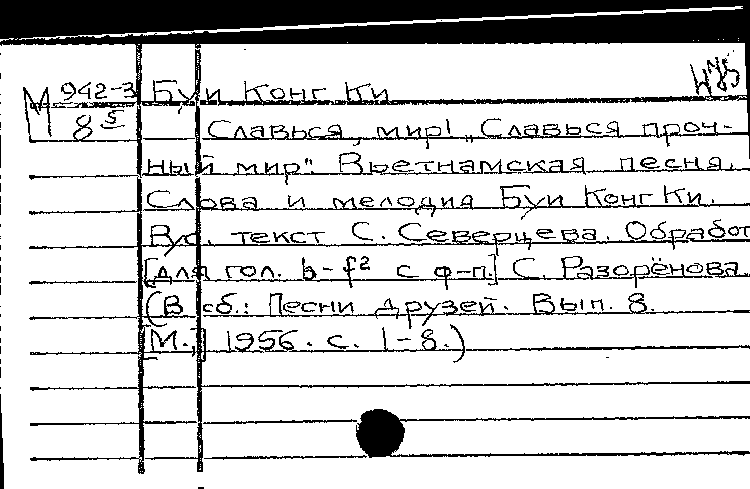 М 942-3 Буи Конг Ки
8 5
Славься, мир! „Славься проч-
ный мир“. Вьетнамская песня.
Слова и мелодия Буи Конг Ки.
Рус. текст С. Северцева. Обработ
[для гол. b-f² с ф-п.] С. Разорёнова.
(В сб.: Песни друзей. Вып. 8.
[М.,] 1956. с. 1-8.)